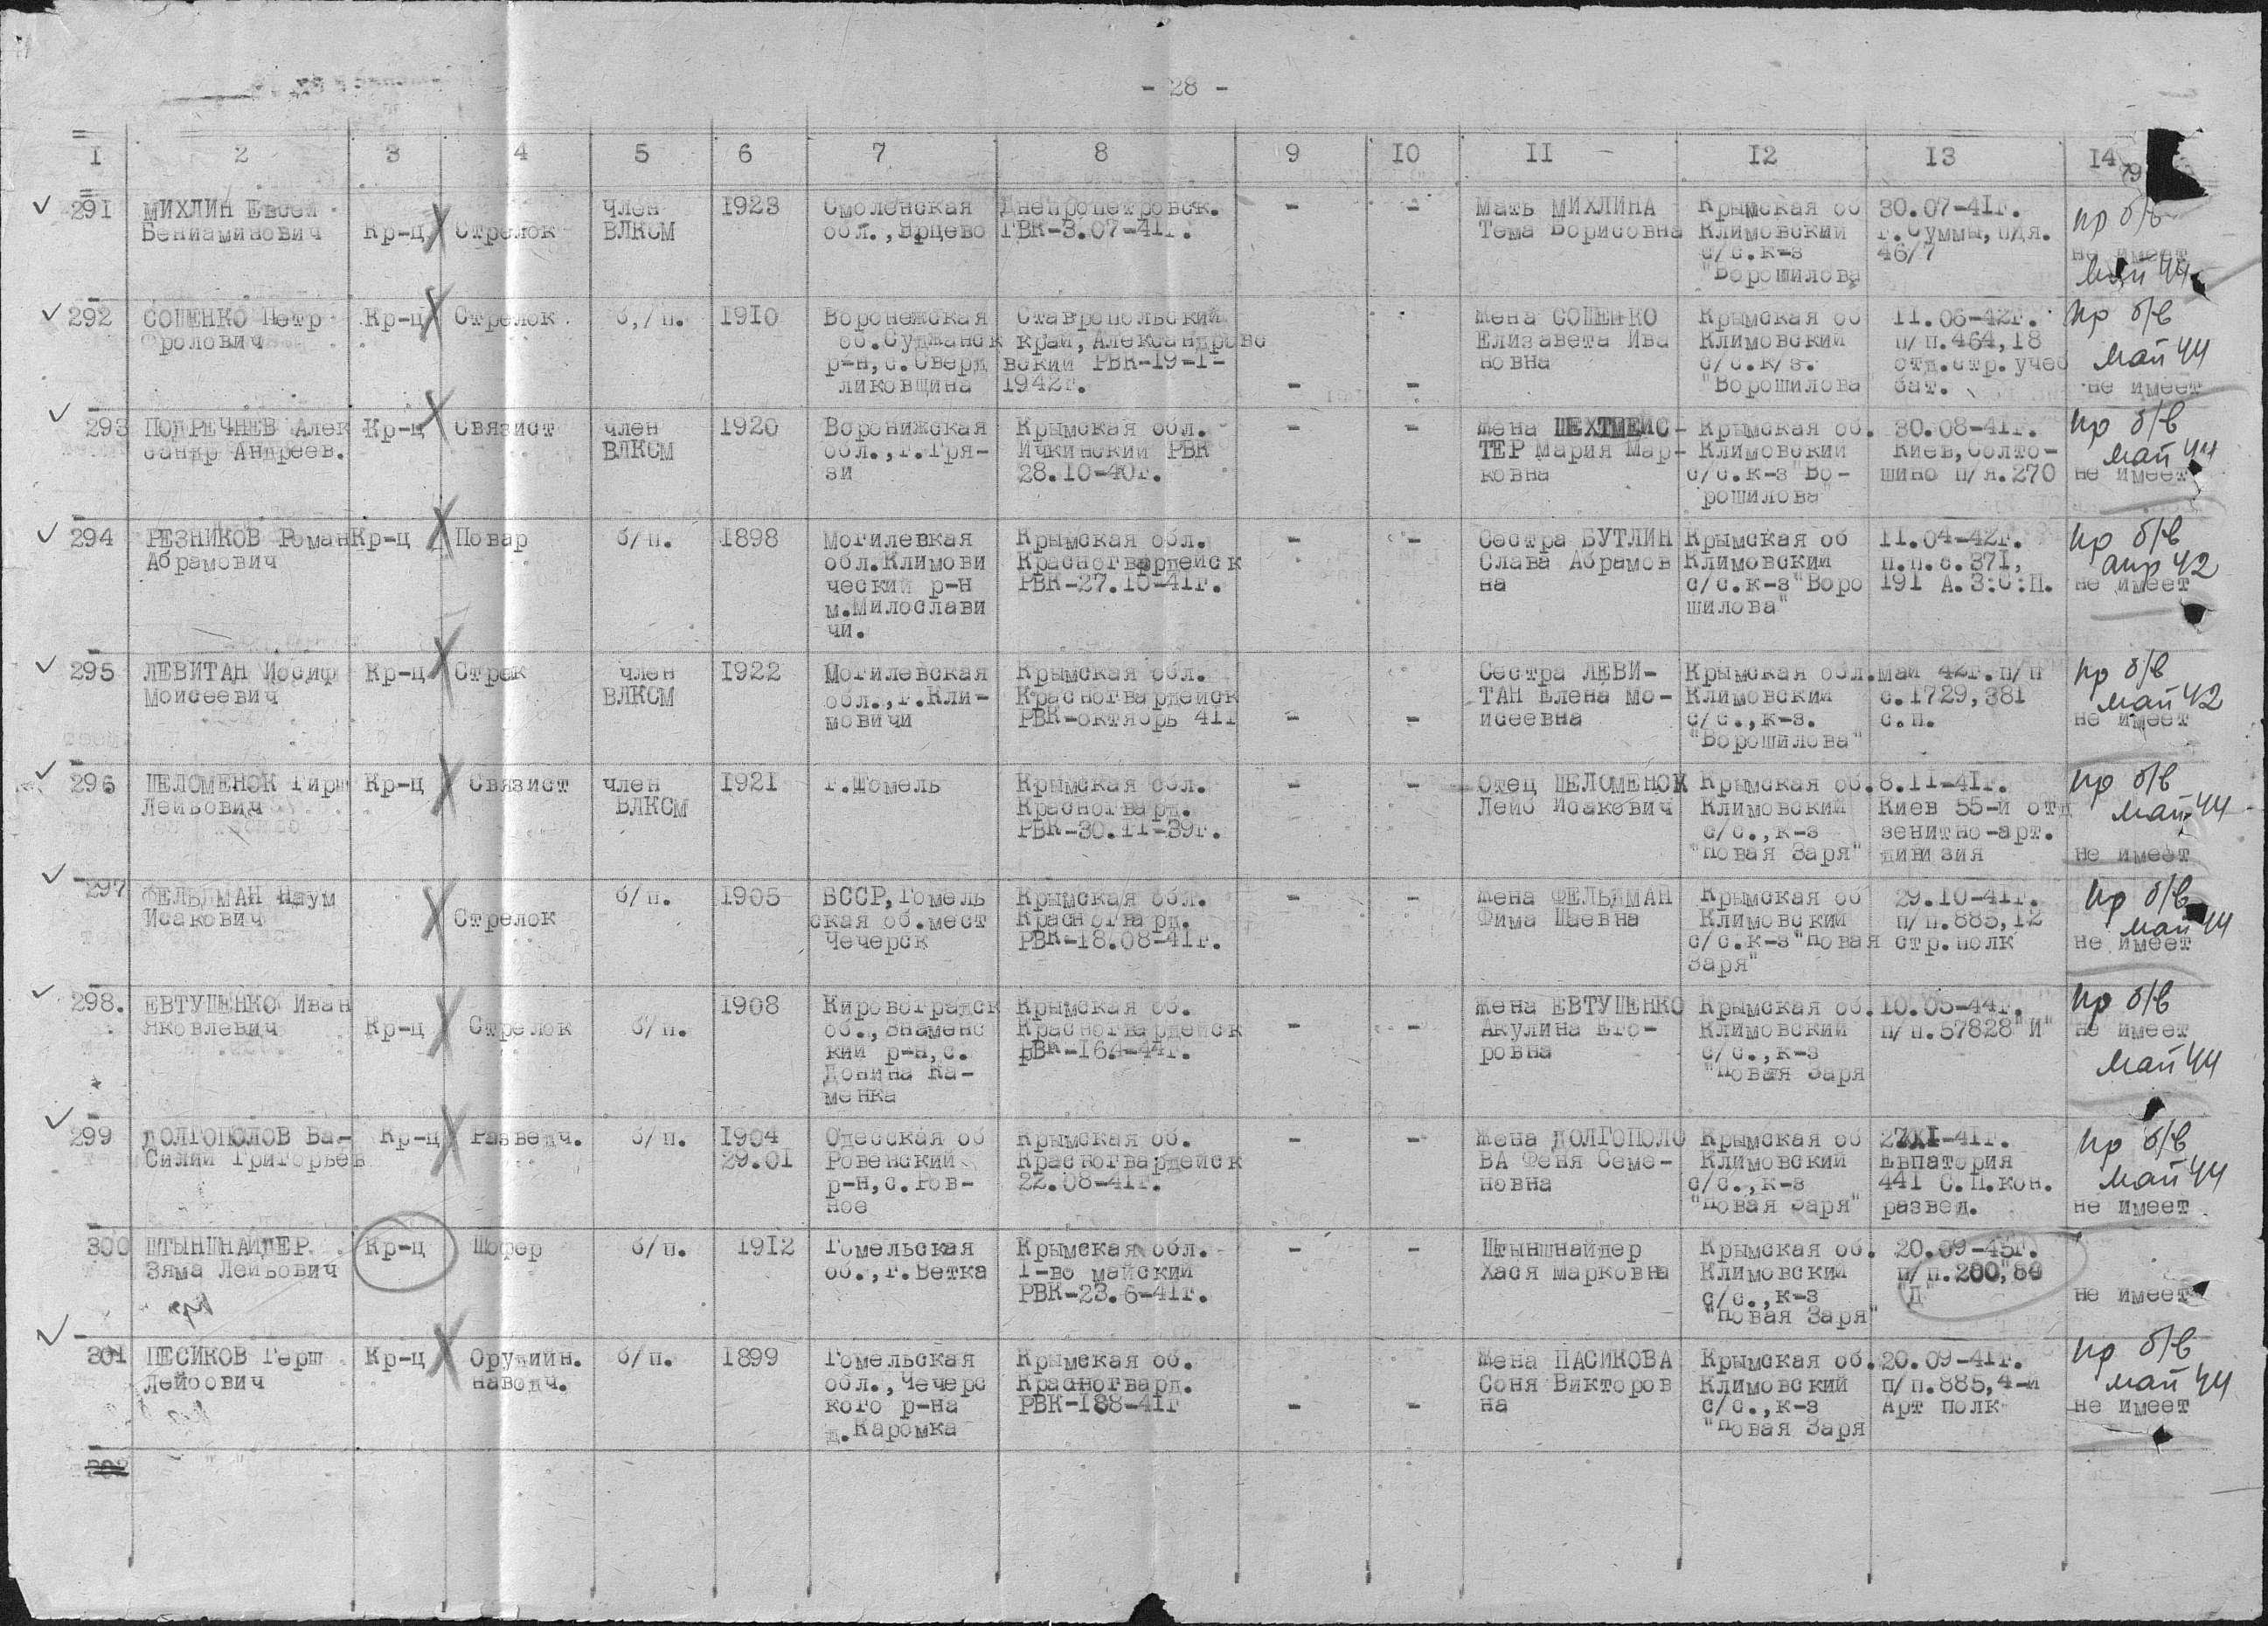 - 28 -
I 2 3 4 5 6 7 8 9 10 II I2 I3 I4
291 МИХЛИН Евсей член 1923 Смоленская Днепропетровск. - - Мать МИХЛИНА Крымская об 30.07-41г. пр б/в
Бениаминович Кр-ц Стрелок ВЛКСМ обл.,Ярцево ГВК-3.07-41г. Тема Борисовна Климовский г.Суммы,п/я.
с/с.к-з 46/7 не имеет
"Ворошилова май 44
292 СОШЕНКО Петр Кр-ц Стрелок б,/п. 1910 Воронежская Ставропольский Жена СОШЕНКО Крымская об 11.06-42г. пр б/в
Фролович об.Суджанск край,Александровс Елизавета Ива Климовский п/п.464,18
р-н,с.Сверд вский РВК-19-I- новна с/с.к/з. отд.стр.учеб май 44
ликовщина 1942г. - - "Ворошилова бат. не имеет
293 ПОДРЕЧНЕВ Алек Кр-ц Связист член 1920 Воронижская Крымская обл. - - Жена ШЕХТМЕЙС- Крымская об. 30.08-41г. пр б/в
сандр Андреев. ВЛКСМ обл.,г.Гря- Ичкинский РВК ТЕР Мария Мар- Климовский Киев,Солто- май 44
зи 28.10-40г. ковна с/с.к-з"Во- шино п/я.270 не имеет
рошилова"
294 РЕЗНИКОВ Роман Кр-ц Повар б/п. 1898 Могилевкая Крымская обл. - - Сестра БУТЛИН Крымская об 11.04-42г. пр б/в
Абрамович обл.Климови Красногвардейск Слава Абрамов Климовский п.п.с.371, апр 42
ческий р-н РВК-27.10-41г. на с/с.к-з"Воро 191 А.З:С:П. не имеет
м.Милослави шилова"
чи.
295 ЛЕВИТАН Иосиф Кр-ц Стрек член 1922 Могилевская Крымская обл. Сестра ЛЕВИ- Крымская обл. май 42г.п/п пр б/в
Моисеевич ВЛКСМ обл.,г.Кли- Красногвардейск ТАН Елена Мо- Климовский с.1729,381 май 42
мовичи РВК-октябрь 41г - - исеевна с/с.,к-з. с.п. не имеет
"Ворошилова"
296 ШЕЛОМЕНОК Гирш Кр-ц Связист член 1921 г.Гомель Крымская обл. - - Отец ШЕЛОМЕНОК Крымская об. 8.11-41г. пр б/в
Лейбович ВЛКСМ Красногвард. Лейб Исакович Климовский Киев 55-й отд май 44
РВК-30.11-39г. с/с.,к-з зенитно-арт.
"Новая Заря" дивизия не имеет
297 ФЕЛЬДМАН Наум б/п. 1905 БССР,Гомель Крымская обл. - - Жена ФЕЛЬДМАН Крымская об 29.10-41г. пр б/в
Исакович Стрелок ская об.мест Красногвард. Фима Шаевна Климовский п/п.885,12 май 44
Чечерск РВК-18.08-41г. с/с.к-з"Новая стр.полк не имеет
Заря"
298. ЕВТУШЕНКО Иван 1908 Кировоградск Крымская об. Жена ЕВТУШЕНКО Крымская об. 10.05-44г. пр б/в
Яковлевич Кр-ц Стрелок б/п. об.,Знаменс Красногвардейск - - Акулина Его- Климовский п/п.57828"И" не имеет
кий р-н,с. РВК-164-44г. ровна с/с.,к-з май 44
Донина Ка- "Новая Заря
менка
299 ДОЛГОПОЛОВ Ва- Кр-ц Разведч. б/п. 1904 Одесская об Крымская об. - - Жена ДОЛГОПОЛО Крымская об 27XI-41г. пр б/в
силий Григорьев 29.01 Ровенский Красногвардейск ВА Феня Семе- Климовский Евпатория
р-н,с.Ров- 22.08-41г. новна с/с.,к-з 441 С.П.кон. май 44
ное "Новая Заря" развед. не имеет
300 ШТЫНШНАЙДЕР Кр-ц Шофер б/п. 1912 Гомельская Крымская обл. - - Штыншнайдер Крымская об. 20.09-45г.
Зяма Лейбович об.,г.Ветка I-во майский Хася Марковна Климовский п/п.200,"80
РВК-23.6-41г. с/с.,к-з "Д" не имеет
"Новая Заря"
301 ПЕСИКОВ Герш Кр-ц Орудийн. б/п. 1899 Гомельская Крымская об. Жена ПАСИКОВА Крымская об. 20.09-41г. пр б/в
Лейбович наводч. обл.,Чечерс Красногвард. Соня Викторов Климовский п/п.885,4-й май 44
кого р-на РВК-188-41г - - на с/с.,к-з Арт полк не имеет
д.Каромка "Новая Заря
302